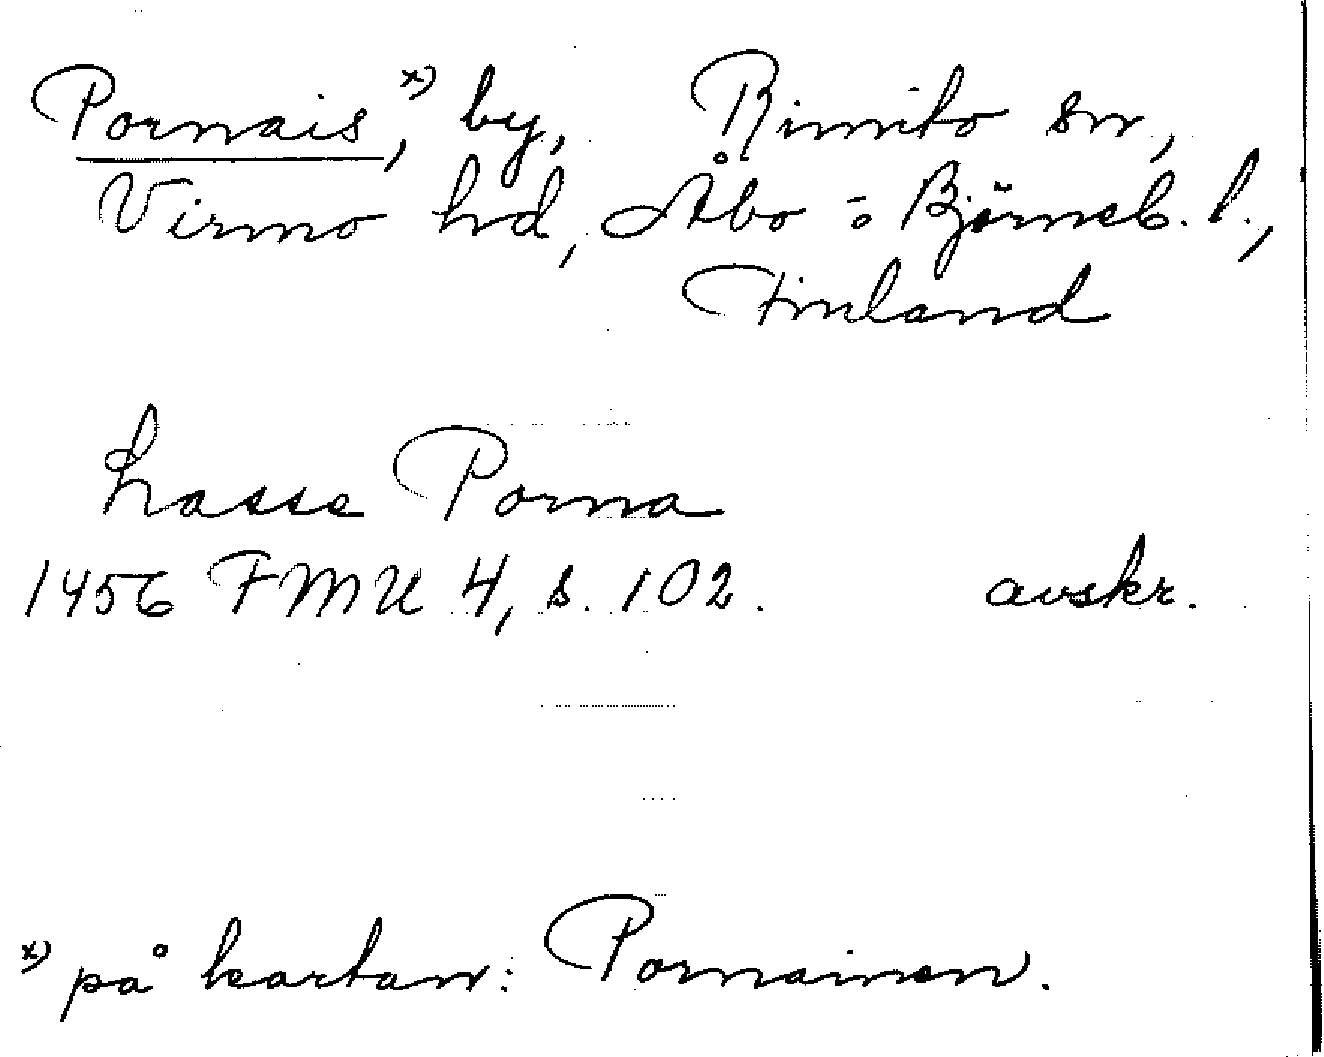 Pornais,*) by, Rimito sn,
Virmo hd, Åbo - o Björneb. l.,
Finland
Lasse Porna
1456 FMU 4, s. 102. avskr.
*) på kartan: Pornainen.